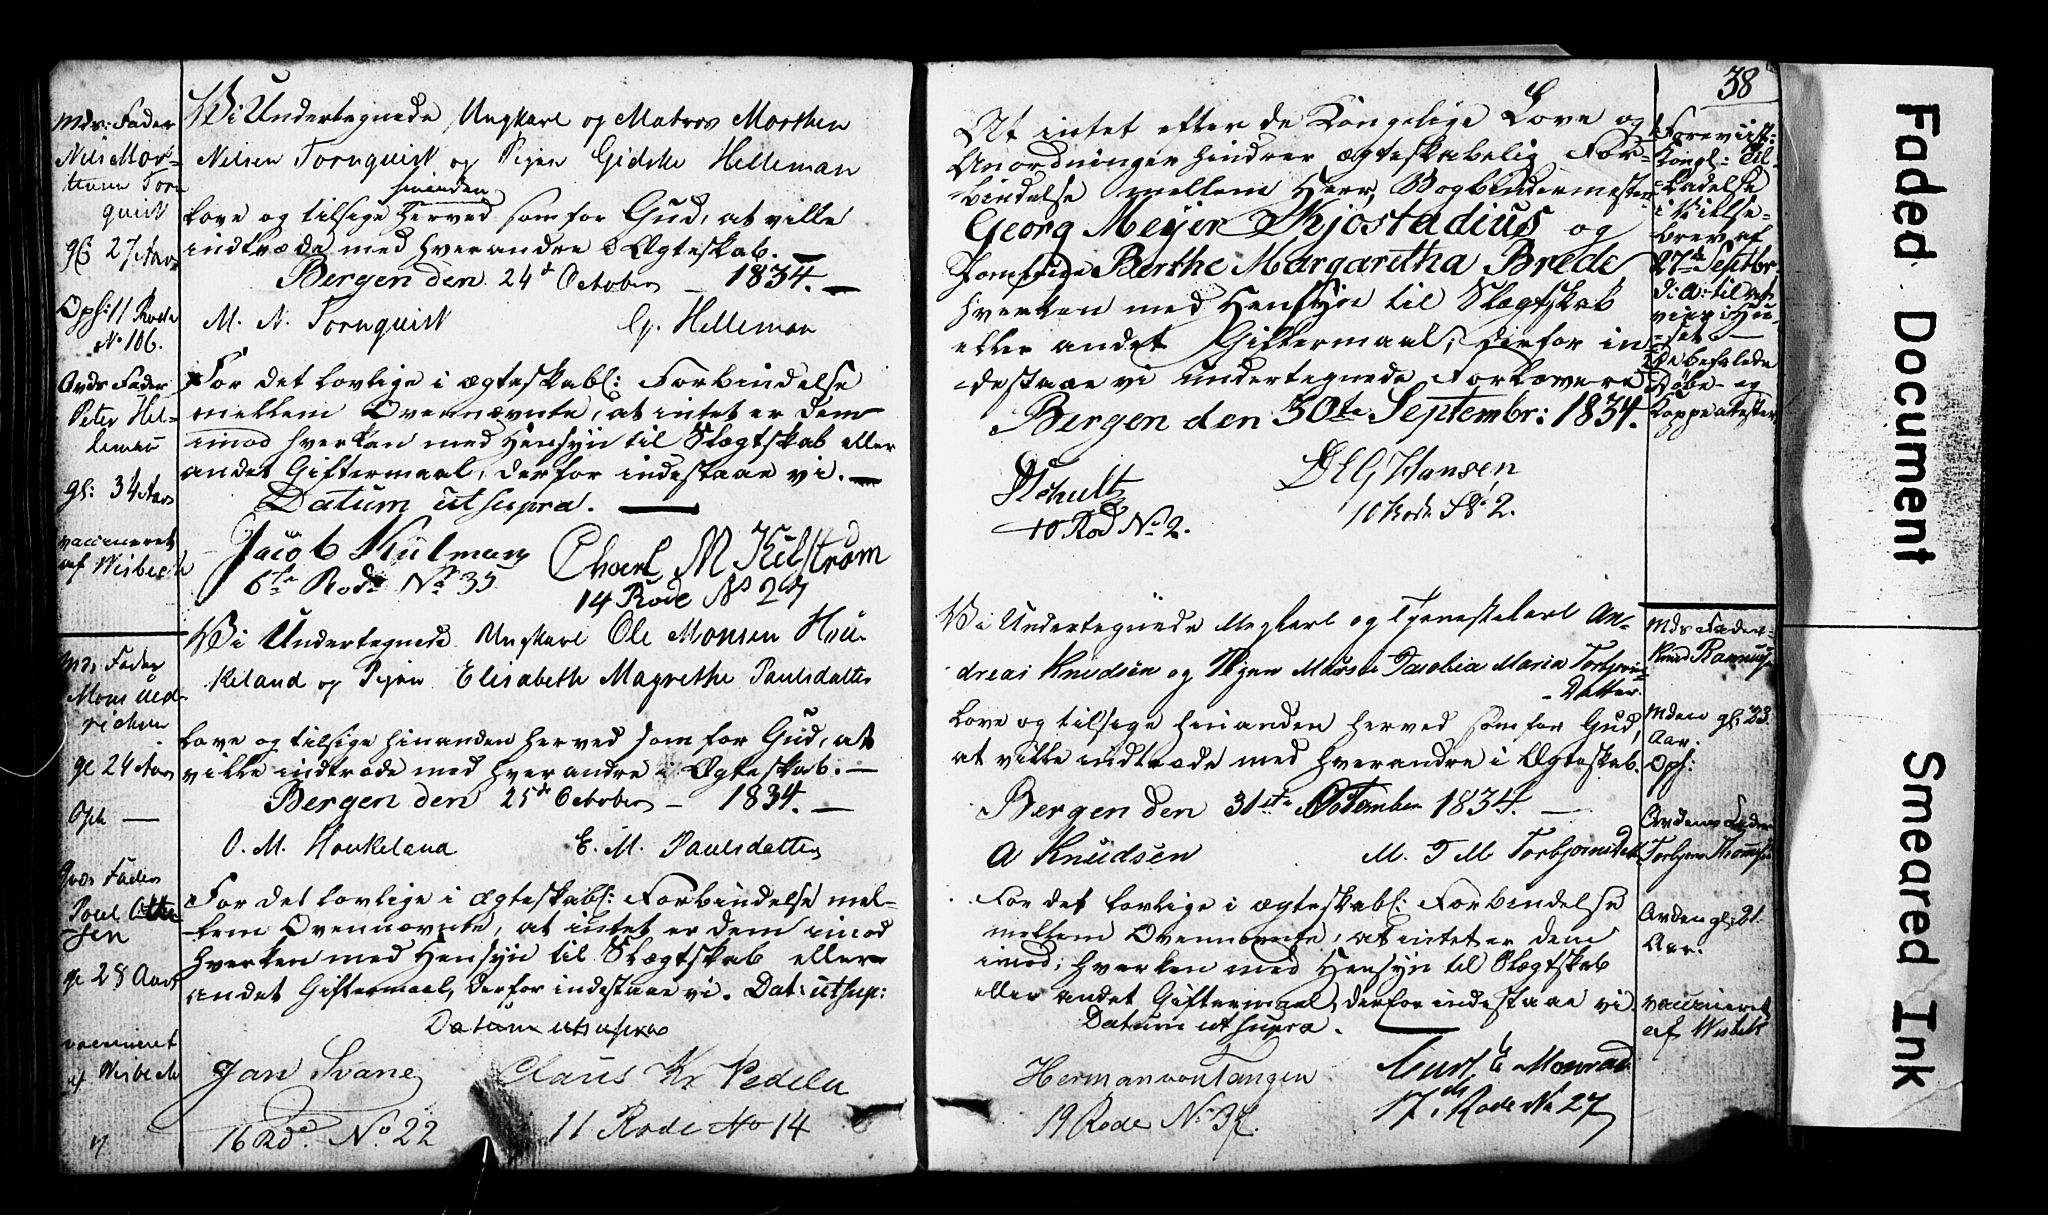 Mds: Fader
Nils Mor-
tensen Torn
quist
gl: 27 Aars
Oph: 11 Rode
No 106.
Brds Fader
Peter Hel-
leman
gl: 34 Aars
vaccineret
af Wisbech
Vi Undertegnede Ungkarl og Matros Morthen
Nelsen Tornquist og Pigen Gidske Helleman
hinanden
love og tilsige herved som for Gud, at ville
indtræde med hverandre i Ægteskab.
Bergen den 24d October 1834.
M. N. Tornquist G. Helleman
For det lovlige i ægteskabl: Forbindelse
mellem Ovennævnte, at intet er dem
imod hverken med Hensyn til Slægtskab eller
andet Giftermaal, derfor indestaae vi.
Datum utsupra.
Jacob Kulmann Charl M Kilstrøm
6te Rode No 35 14 Rode No 27
Mds Fader
Mons
gl 24 Aars
Oph
Brds Fader
Poul Otte-
sen
gl 28 Aars
vaccineret
af Wisbech
Vi Undertegnede Ungkarl Ole Monsen Hou-
keland og Pigen Elisabeth Magrethe Paulsdatter
love og tilsige hinanden herved som for Gud, at
ville indtræde med hverandre i Ægteskab.
Bergen den 25de October 1834.
O. M. Houkeland E. M. Paulsdatter
For det lovlige i ægteskabl: Forbindelse mel-
lem Ovennævnte, at intet er dem imod
hverken med Hensyn til Slægtskab eller
andet Giftermaal, derfor indestaae vi. Dat: utsup:
Datum utsupra
Jan Svane Claus Kr Pedeln
16 Rd. No 22 11 Rode No 14
38
At intet efter de Kongelige Love og
Anordninger hindrer ægteskabelig For-
bindelse mellem Herr Bogbindermester
Georg Meyer Skjostadius og
Jomfrue Berthe Margaretha Brede
hverken med Hensyn til Slægtskab
eller andet Giftermaal; derfor in-
destaae vi undertegnede Forlovere
Bergen den 30te Septembr: 1834.
Schultz Hansen
10 Rod No 2. 10 Rode No 2.
Foreviist
Kongl: Til-
ladelse
i Vielse-
brev af
27de Septbr
d: A: til at
vies i Huu-
set
de befalede
Døbe- og
Koppeatester
Vi Undertegnede Ungkarl og Tjenestekarl An-
dreas Knudsen og Pigen Maria Torbjörns-
Datter
love og tilsige hinanden herved som for Gud,
at ville indtræde med hverandre i Ægteskab.
Bergen den 31te 1834.
A Knudsen M. T M Torbjornsdatt
For det lovlige i ægteskabl: Forbindelse
mellem Ovennævnte, at intet er dem
imod, hverken med Hensyn til Slægtskab
eller andet Giftermaal, derfor indestaae vi.
Datum utsupra.
Herman von Tangen Curt E Monrad
19 Rode No 37. 17de Rode No 27
Mds Fader
Knud Rasmusen
Mden gl: 23
Aar.
Oph:
Brdens Fader
Torbjørn
Brden gl: 21
Aar.
vaccineret
af Wisbech
Faded Document
Smeared Ink